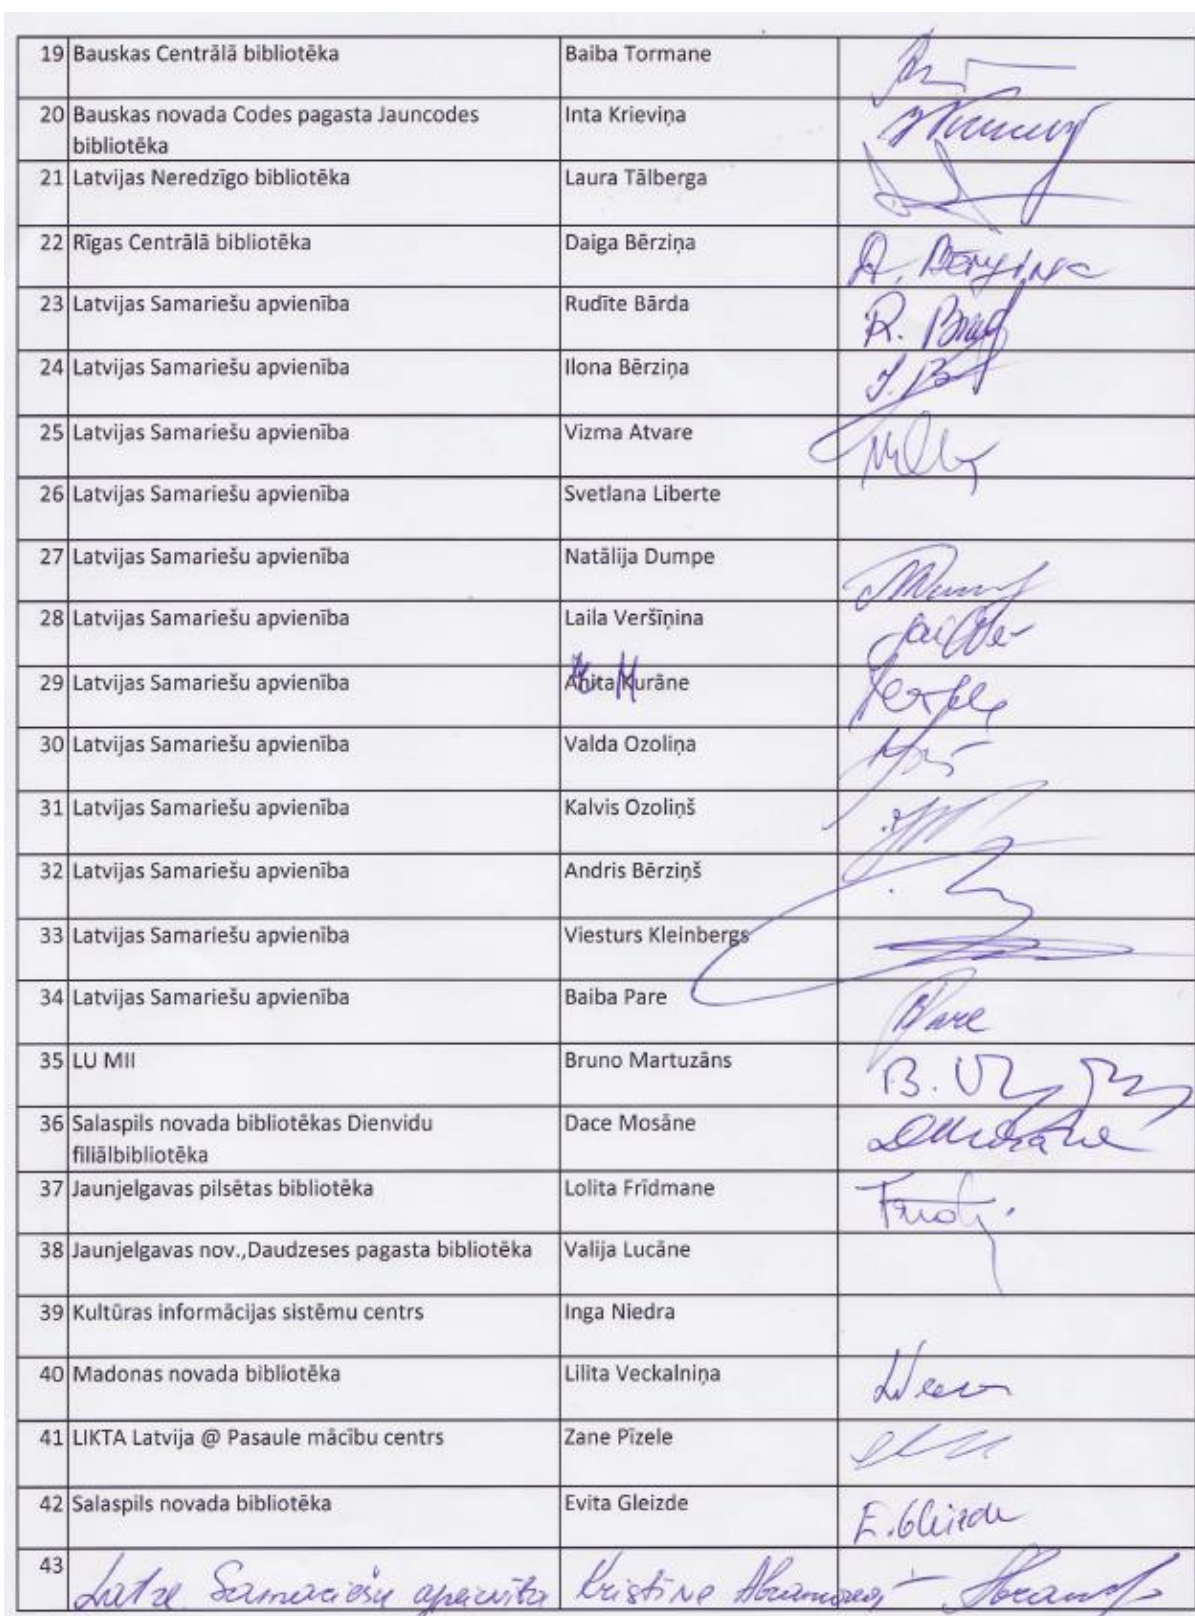 19 Bauskas Centrālā bibliotēka Baiba Tormane
20 Bauskas novada Codes pagasta Jauncodes Inta Krieviņa
bibliotēka
21 Latvijas Neredzīgo bibliotēka Laura Tālberga
22 Rīgas Centrālā bibliotēka Daiga Bērziņa
23 Latvijas Samariešu apvienība Rudīte Bārda R.
24 Latvijas Samariešu apvienība Ilona Bērziņa
25 Latvijas Samariešu apvienība Vizma Atvare
26 Latvijas Samariešu apvienība Svetlana Liberte
27 Latvijas Samariešu apvienība Natālija Dumpe
28 Latvijas Samariešu apvienība Laila Veršīņina
29 Latvijas Samariešu apvienība Anita Kurāne
30 Latvijas Samariešu apvienība Valda Ozoliņa
31 Latvijas Samariešu apvienība Kalvis Ozoliņš
32 Latvijas Samariešu apvienība Andris Bērziņš
33 Latvijas Samariešu apvienība Viesturs Kleinbergs
34 Latvijas Samariešu apvienība Baiba Pare BPare
35 LU MII Bruno Martuzāns B.
36 Salaspils novada bibliotēkas Dienvidu Dace Mosāne
filiālbibliotēka
37 Jaunjelgavas pilsētas bibliotēka Lolita Frīdmane
38 Jaunjelgavas nov.,Daudzeses pagasta bibliotēka Valija Lucāne
39 Kultūras informācijas sistēmu centrs Inga Niedra
40 Madonas novada bibliotēka Lilita Veckalniņa
41 LIKTA Latvija @ Pasaule mācību centrs Zane Pīzele
42 Salaspils novada bibliotēka Evita Gleizde E.Gleizde
43 Kristīne